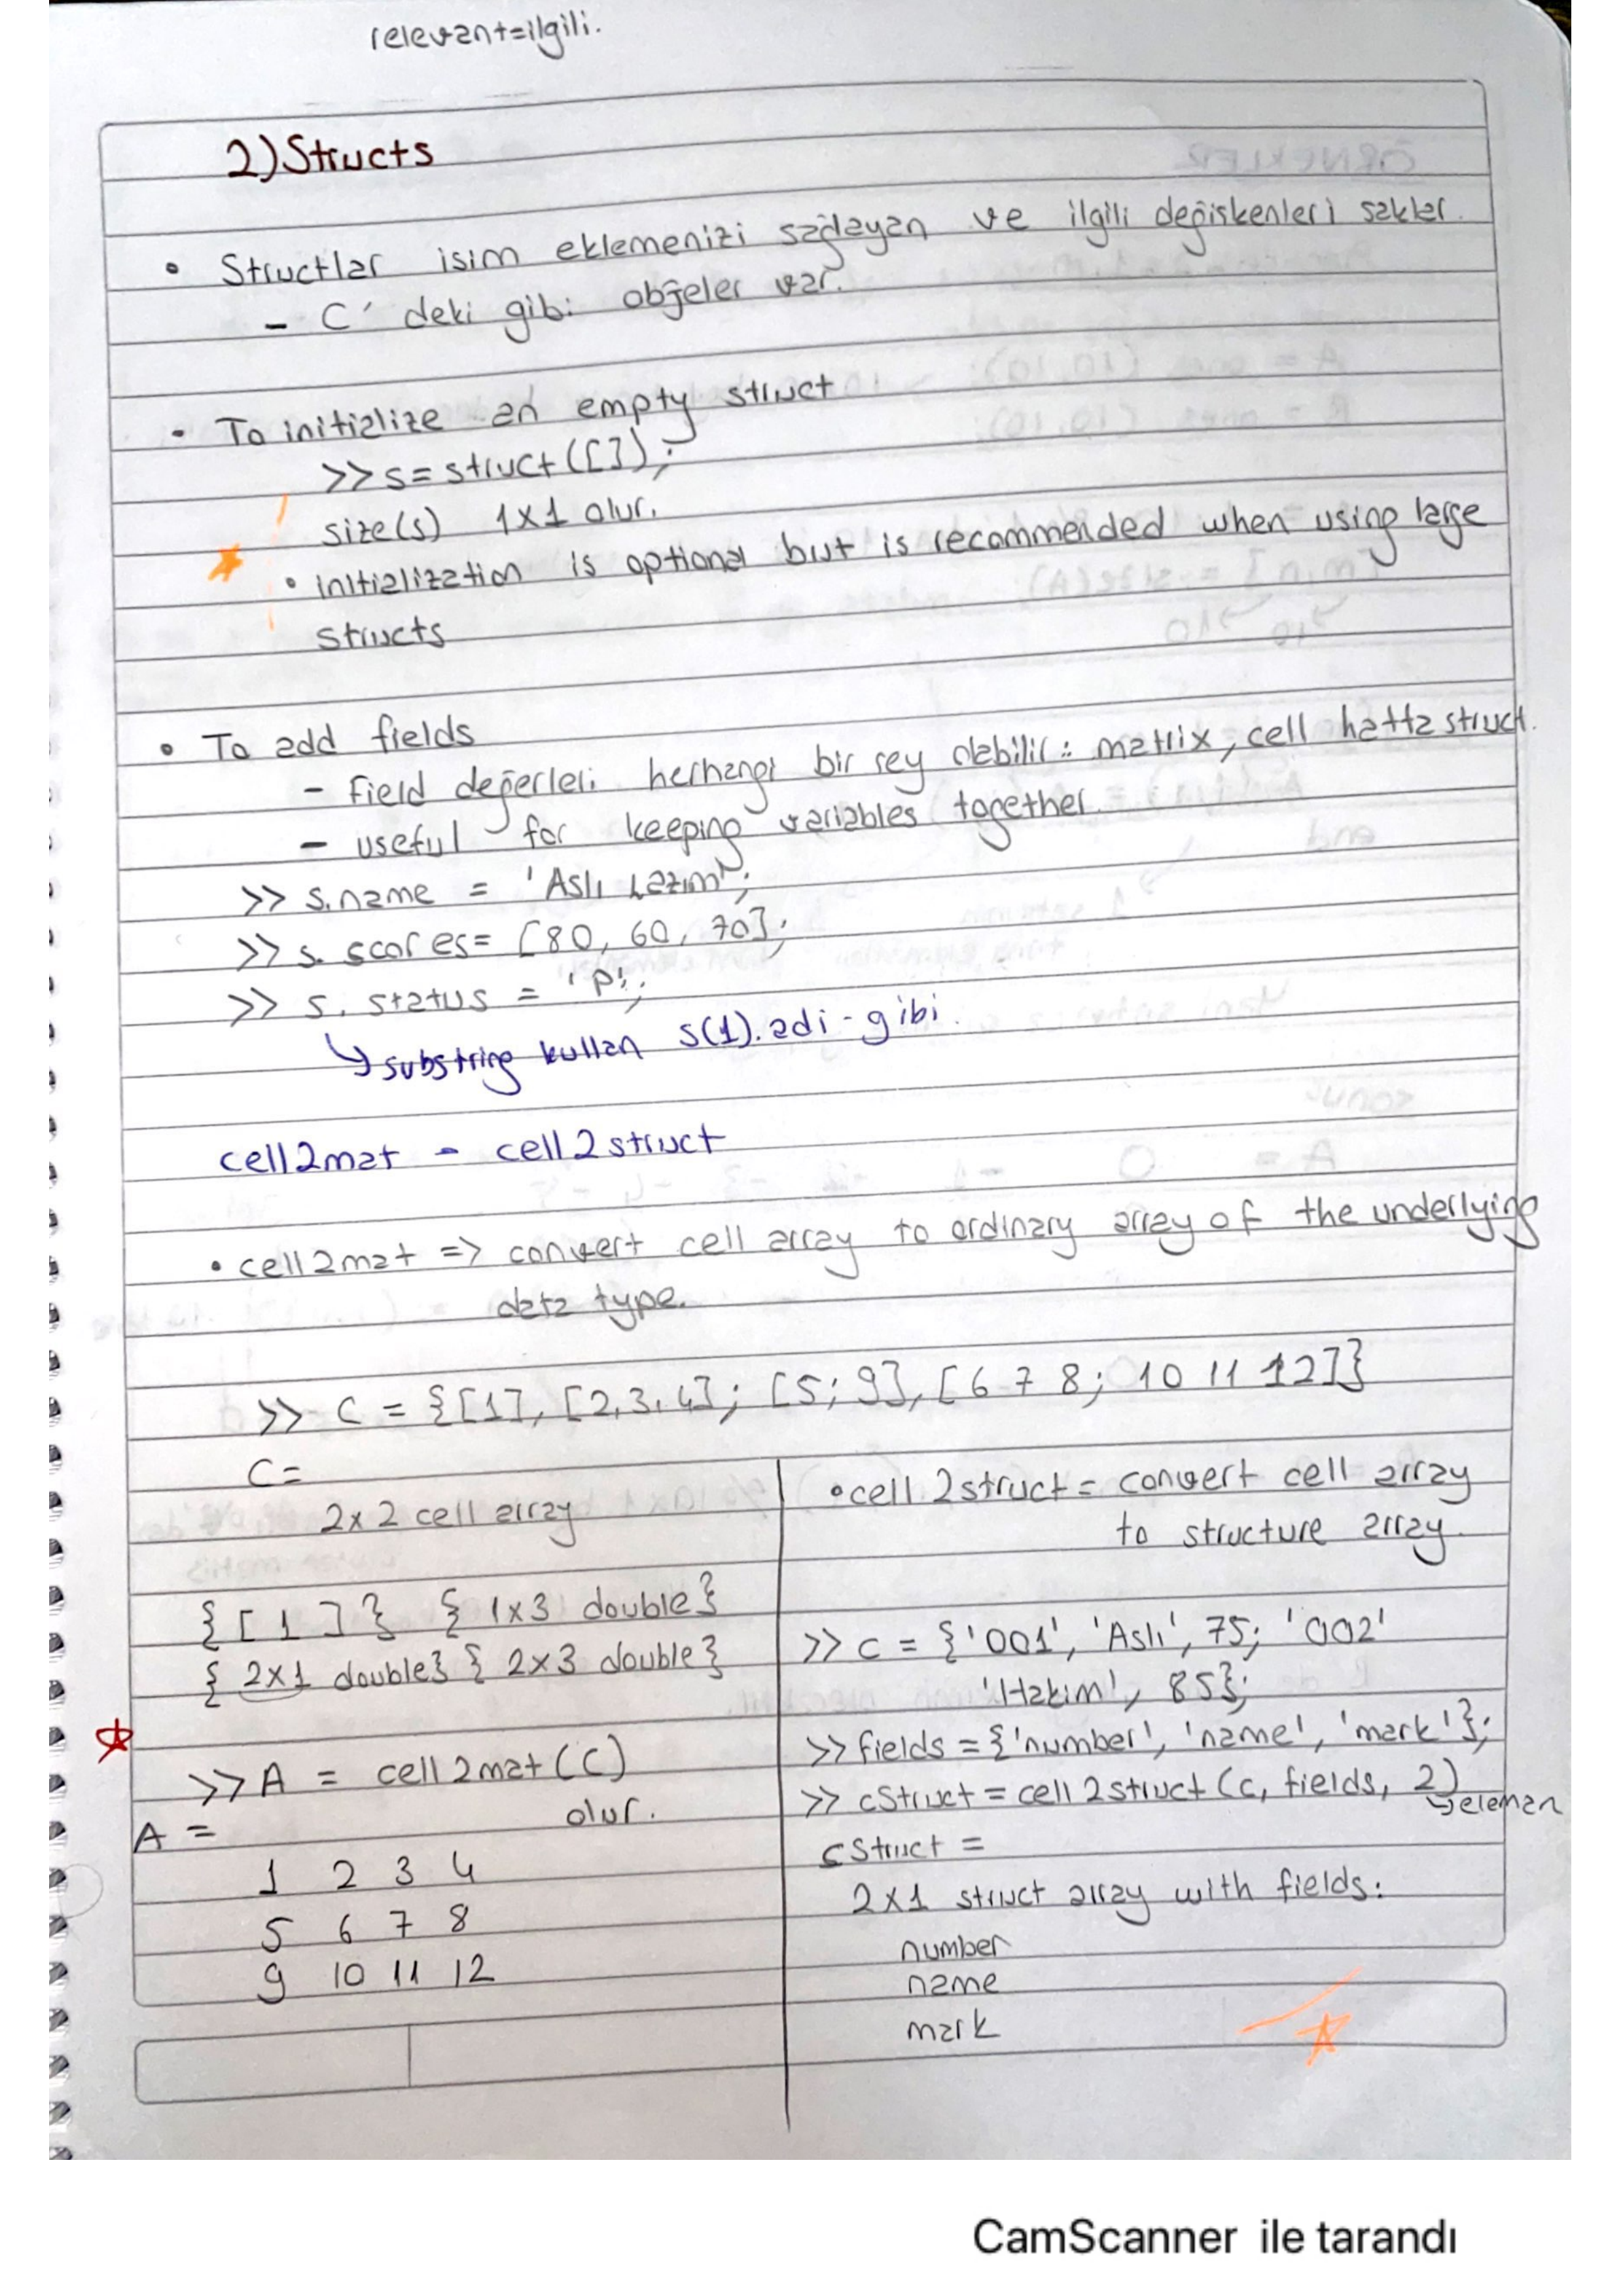 relevant=ilgili.
2) Structs
• Structlar isim eklemenizi sağlayan ve ilgili değiskenleri saklar.
- C' deki gibi objeler var.
• To initialize an empty struct
>> s= struct([]);
size(s) 1x1 olur.
• initialization is optional but is recommended when using large
structs
• To add fields
- field değerleri herhangi bir sey olabilir: matrix, cell hatta struct.
- useful for keeping variables together.
>> s.name = 'Aslı';
>> s. scores= [80, 60, 70];
>> s. status = 'p';
↳ substring kullan s(1).adi-gibi.
cell2mat - cell2struct
• cell2mat => convert cell array to ordinary array of the underlying
data type.
>> C = {[1], [2,3,4]; [5; 9], [6 7 8; 10 11 12]}
C=
2x2 cell array
{[1]} {1x3 double}
{2x1 double} {2x3 double}
>> A = cell2mat(C)
olur.
A =
1 2 3 4
5 6 7 8
9 10 11 12
• cell2struct = convert cell array
to structure array.
>> c = {'001', 'Aslı', 75; '002'
'Hakim', 85};
>> fields = {'number', 'name', 'mark'};
>> cStruct = cell2struct(c, fields, 2)
↳ eleman
cStruct =
2x1 struct array with fields:
number
name
mark
CamScanner ile tarandı